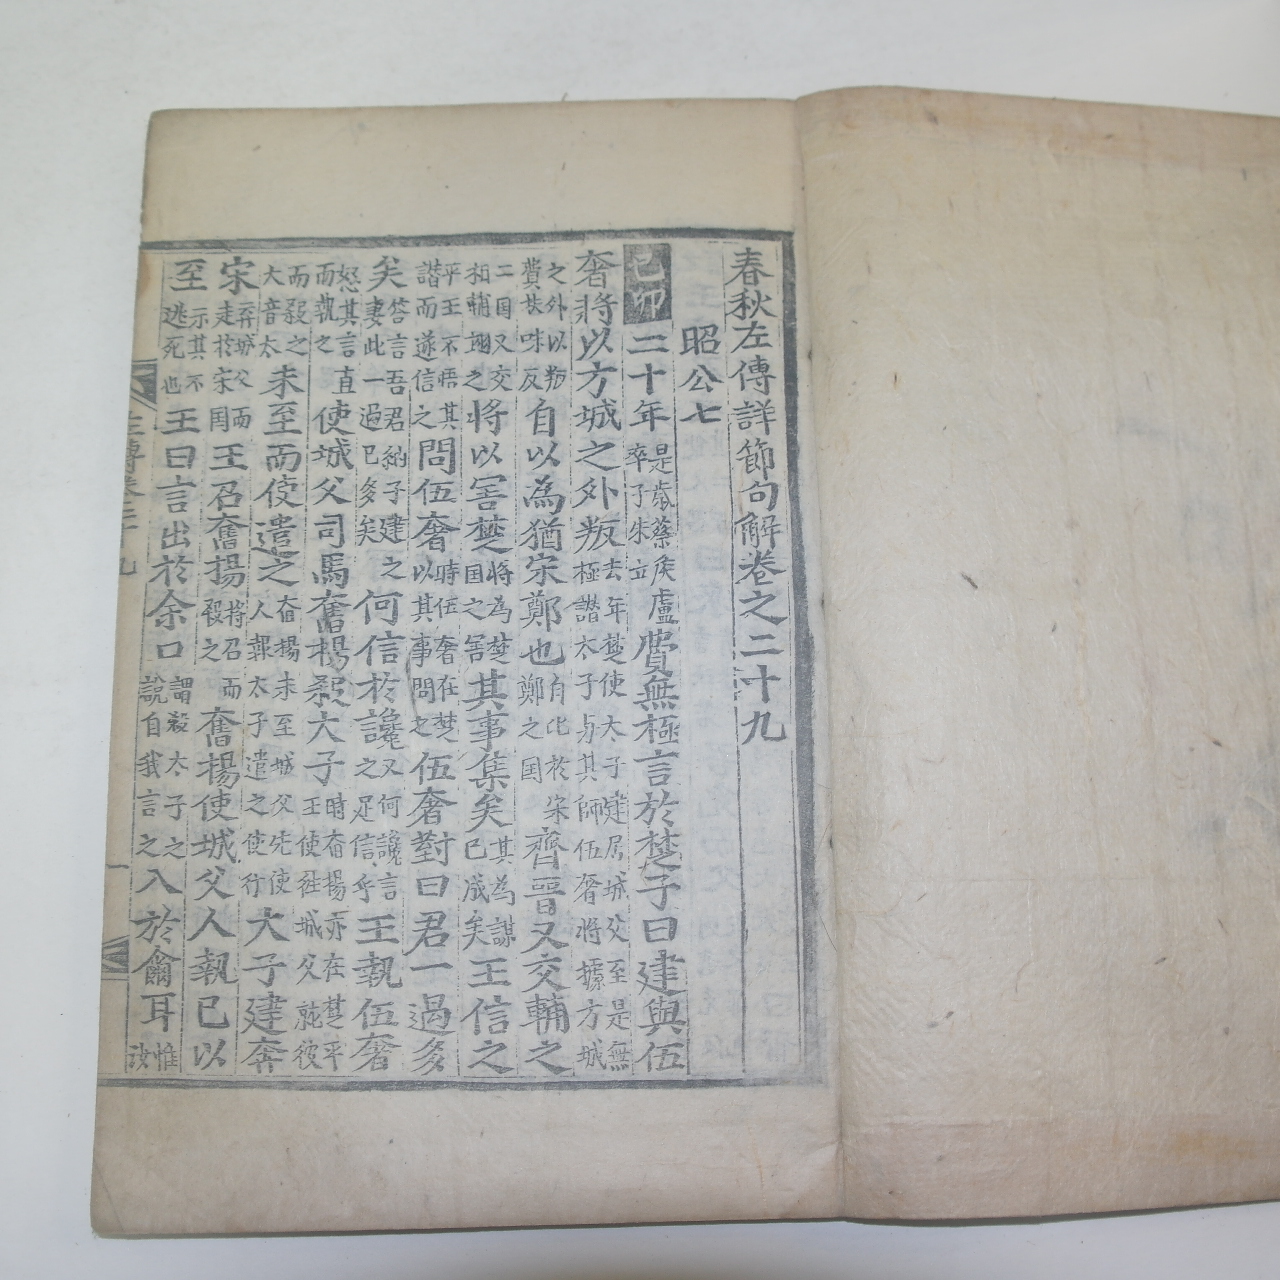 春秋左傳詳節句解卷之二十九
昭公七
己卯二十年是歲蔡侯盧卒子朱立費無極言於楚子曰建與伍
奢將以方城之外叛去年楚使太子建居城父至是無極譖太子与其師伍奢將據方城
之外以叛費扶味反自以為猶宋鄭也自比於宋鄭之国齊晉又交輔之
二国又交相輔翊之將以害楚將為楚国之害其事集矣其為謀已成矣王信之
平王不悟其譖而遂信之問伍奢時伍奢在楚以其事問之伍奢對曰君一過多
矣答言吾君納子建之妻此一過已多矣何信於讒又何讒言之足信乎王執伍奢
怒其言直而執之使城父司馬奮揚殺大子時奋揚亦在楚平王使徃城父就彼
而殺之大音太未至而使遣之奋揚未至城父先使人報太子遣之使行大子建奔
宋弃城父而走於宋国王召奮揚將召而殺之奮揚使城父人執已以
至示其不逃死也王曰言出於余口謂殺太子之說自我言之入於爾耳惟汝
左傳卷二十九 一